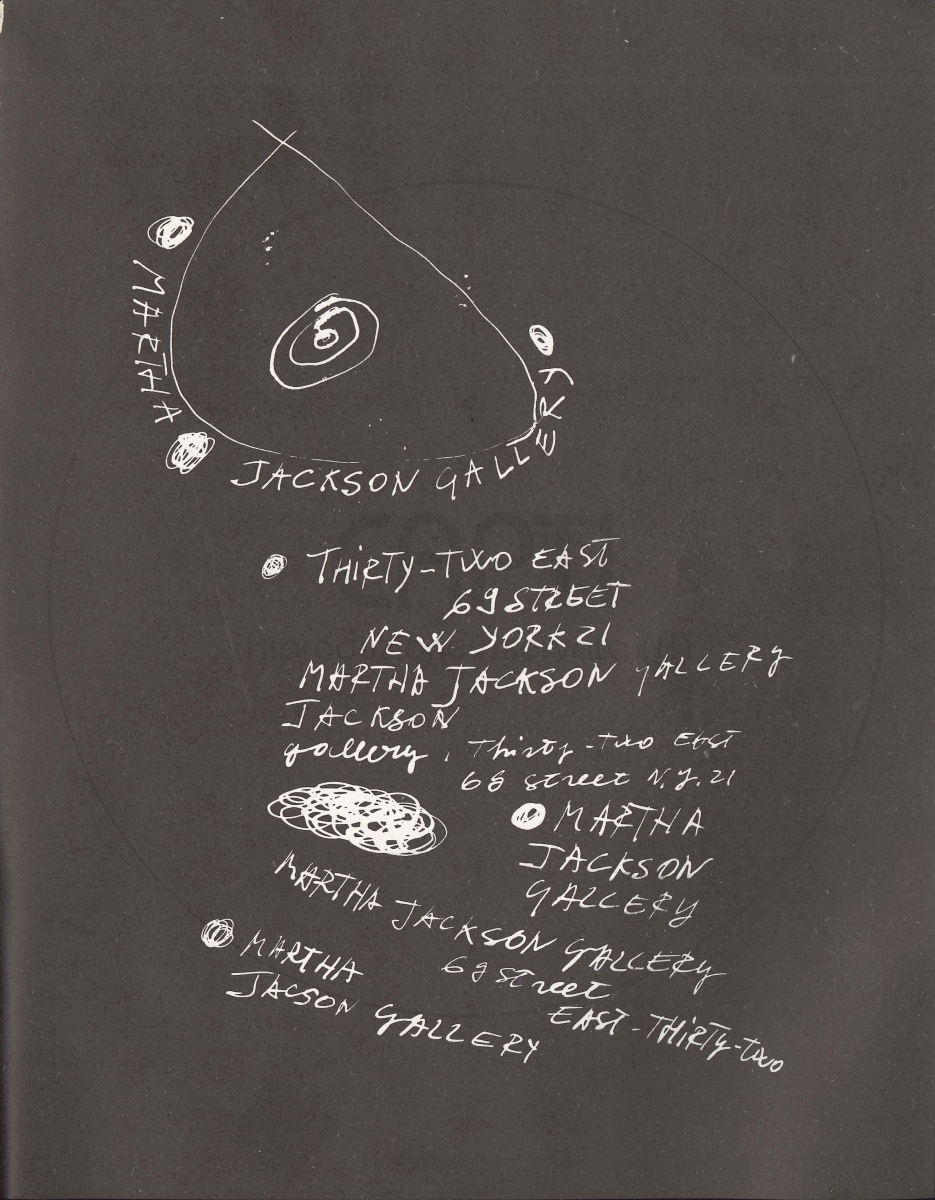 MARTHA
JACKSON GALLERY
THiRTY-TWO EAST
69 STREET
NEW YORK 21
MARTHA JACKSON gALLERY
JACKSON
gallery, Thirty-two EAST
69 street N.Y. 21
MARTHA
JACKSON
GALLERY
MARTHA JACKSON GALLERY
69 Street
EAST-THiRTY-two
MARTHA
JACSON GALLERY